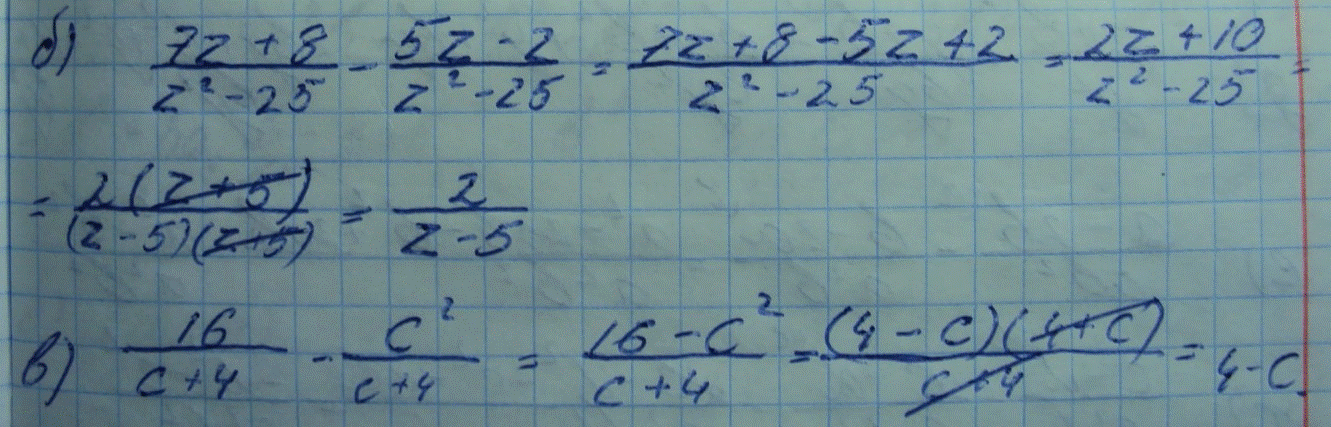 б) (7z + 8)/(z² - 25) - (5z - 2)/(z² - 25) = (7z + 8 - 5z + 2)/(z² - 25) = (2z + 10)/(z² - 25) =
= 2(z + 5)/((z - 5)(z + 5)) = 2/(z - 5)
в) 16/(c + 4) - c²/(c + 4) = (16 - c²)/(c + 4) = (4 - c)(4 + c)/(c + 4) = 4 - c.